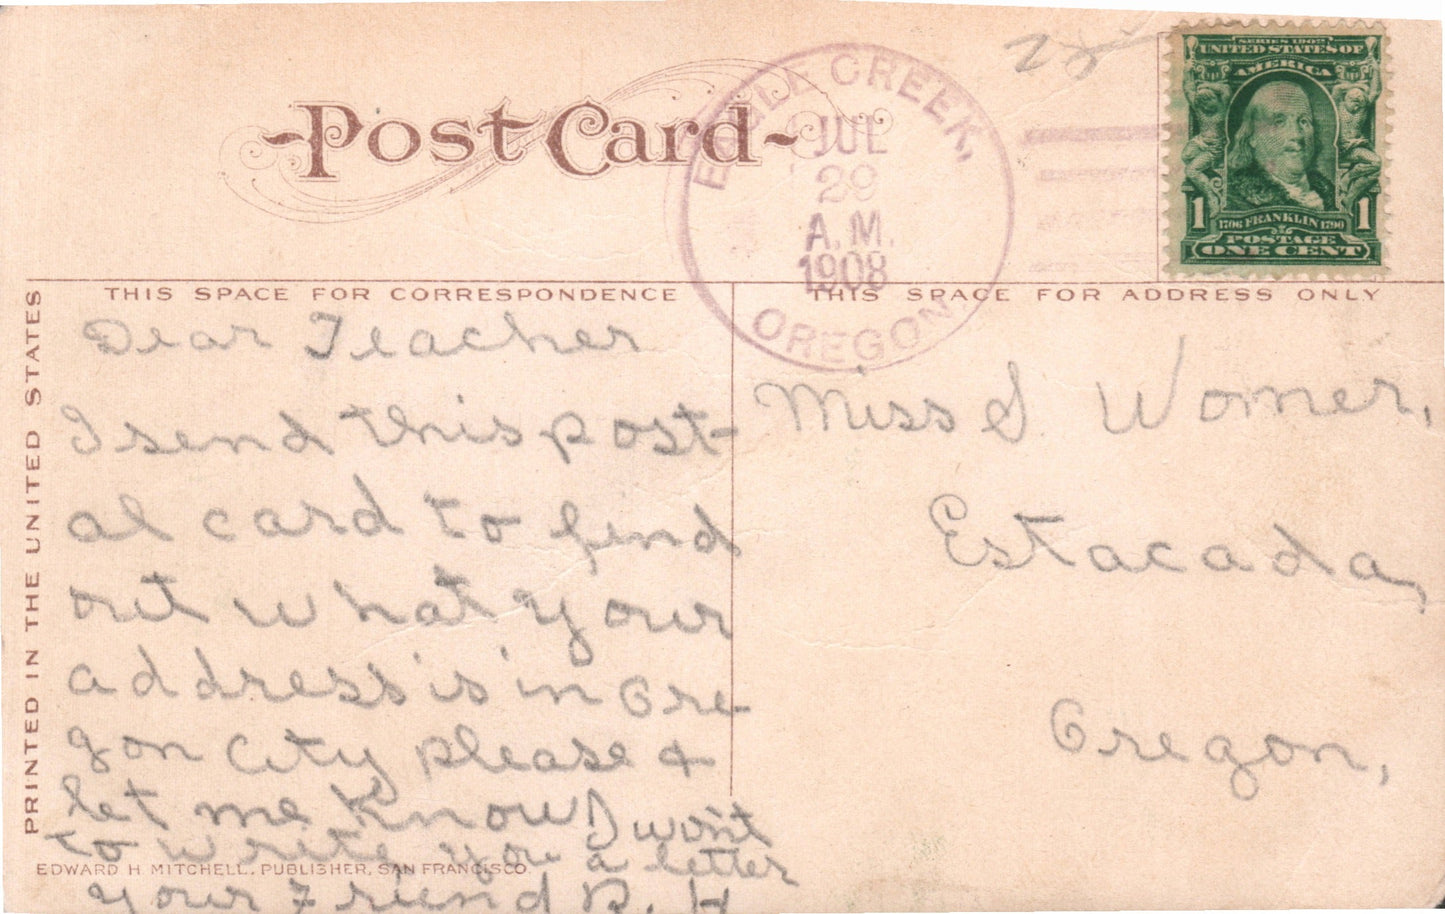 Post Card
EAGLE CREEK,
JUL
29
A.M.
1908
OREGON
SERIES 1902
UNITED STATES OF
AMERICA
1 1
1706 FRANKLIN 1790
POSTAGE
ONE CENT
THIS SPACE FOR CORRESPONDENCE
THIS SPACE FOR ADDRESS ONLY
PRINTED IN THE UNITED STATES
Dear Teacher
I send this post-
al card to find
out what your
address is in Ore-
gon City please &
let me know I want
to write you a letter
your Friend B. H
Miss S Womer,
Estacada,
Oregon,
EDWARD H MITCHELL, PUBLISHER, SAN FRANCISCO.